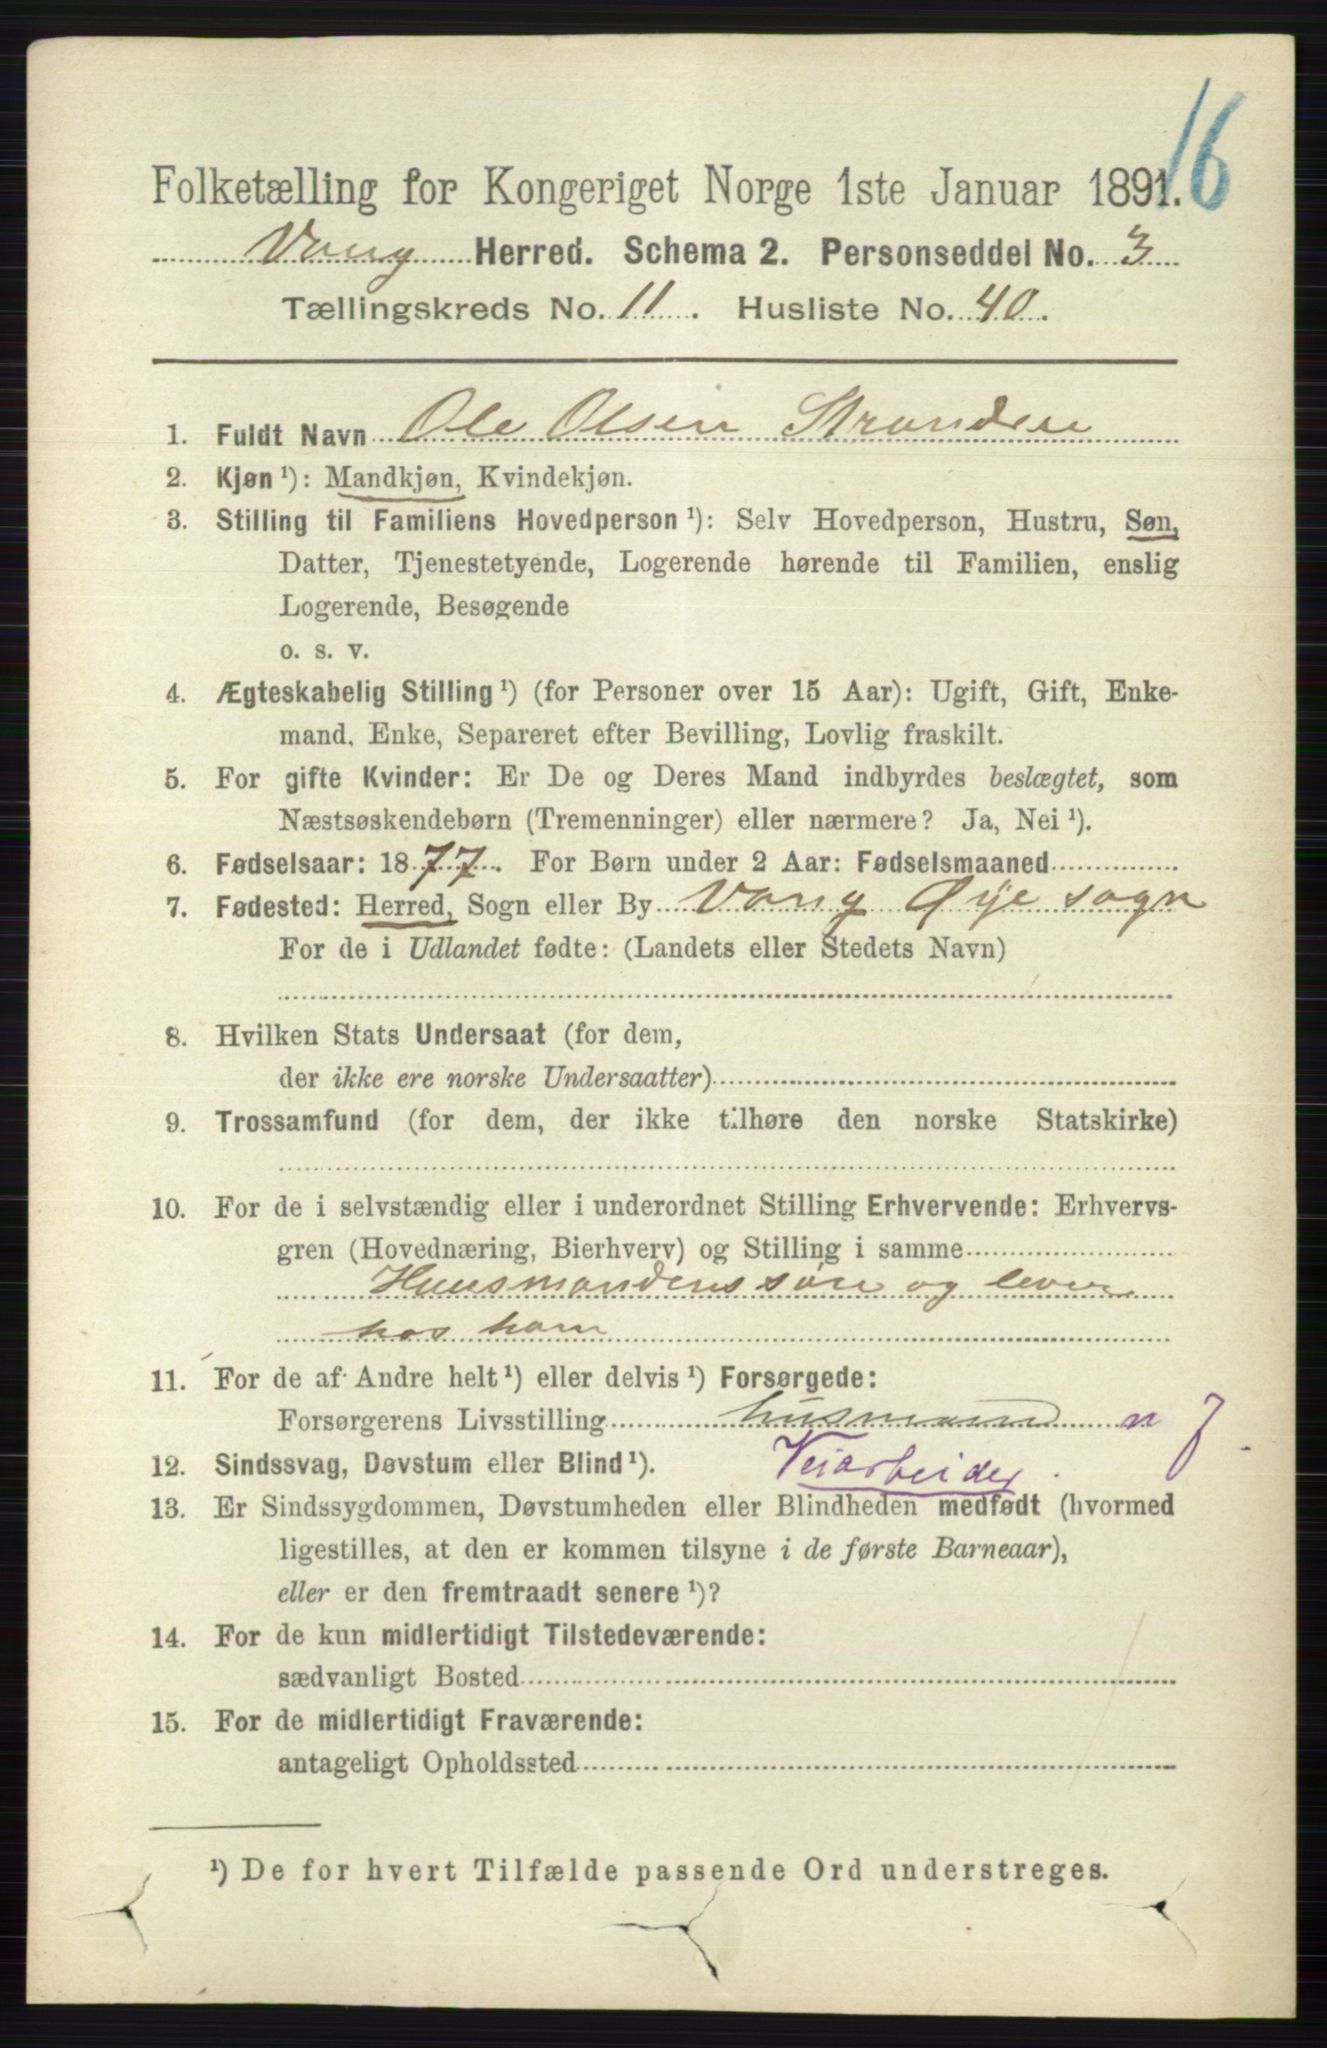 16
Folketælling for Kongeriget Norge 1ste Januar 1891.
Vang Herred. Schema 2. Personseddel No. 3
Tællingskreds No. 11. Husliste No. 40.
1. Fuldt Navn Ole Olsen Stranden
2. Kjøn¹): Mandkjøn, Kvindekjøn.
3. Stilling til Familiens Hovedperson¹): Selv Hovedperson, Hustru, Søn,
Datter, Tjenestetyende, Logerende hørende til Familien, enslig
Logerende, Besøgende
o. s. v.
4. Ægteskabelig Stilling¹) (for Personer over 15 Aar): Ugift, Gift, Enke-
mand, Enke, Separeret efter Bevilling, Lovlig fraskilt.
5. For gifte Kvinder: Er De og Deres Mand indbyrdes beslægtet, som
Næstsøskendebørn (Tremenninger) eller nærmere? Ja, Nei¹).
6. Fødselsaar: 1877. For Børn under 2 Aar: Fødselsmaaned
7. Fødested: Herred, Sogn eller By Vang Øye sogn
For de i Udlandet fødte: (Landets eller Stedets Navn)
8. Hvilken Stats Undersaat (for dem,
der ikke ere norske Undersaatter)
9. Trossamfund (for dem, der ikke tilhøre den norske Statskirke)
10. For de i selvstændig eller i underordnet Stilling Erhvervende: Erhvervs-
gren (Hovednæring, Bierhverv) og Stilling i samme
Huusmandens søn og lever
hos ham
11. For de af Andre helt¹) eller delvis¹) Forsørgede:
Forsørgerens Livsstilling husmand n f
12. Sindssvag, Døvstum eller Blind¹). Veiarbeider
13. Er Sindssygdommen, Døvstumheden eller Blindheden medfødt (hvormed
ligestilles, at den er kommen tilsyne i de første Barneaar),
eller er den fremtraadt senere¹)?
14. For de kun midlertidigt Tilstedeværende:
sædvanligt Bosted
15. For de midlertidigt Fraværende:
antageligt Opholdssted
¹) De for hvert Tilfælde passende Ord understreges.